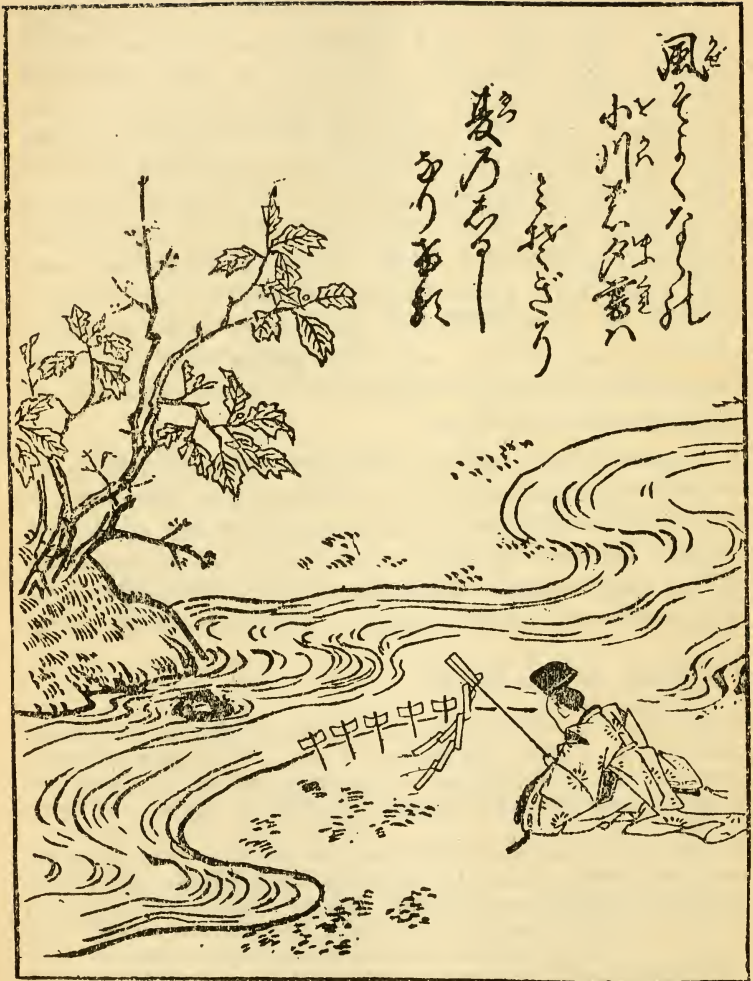 風そよくならの
小川の夕暮ハ
みそぎそ
夏のしるし
なりける